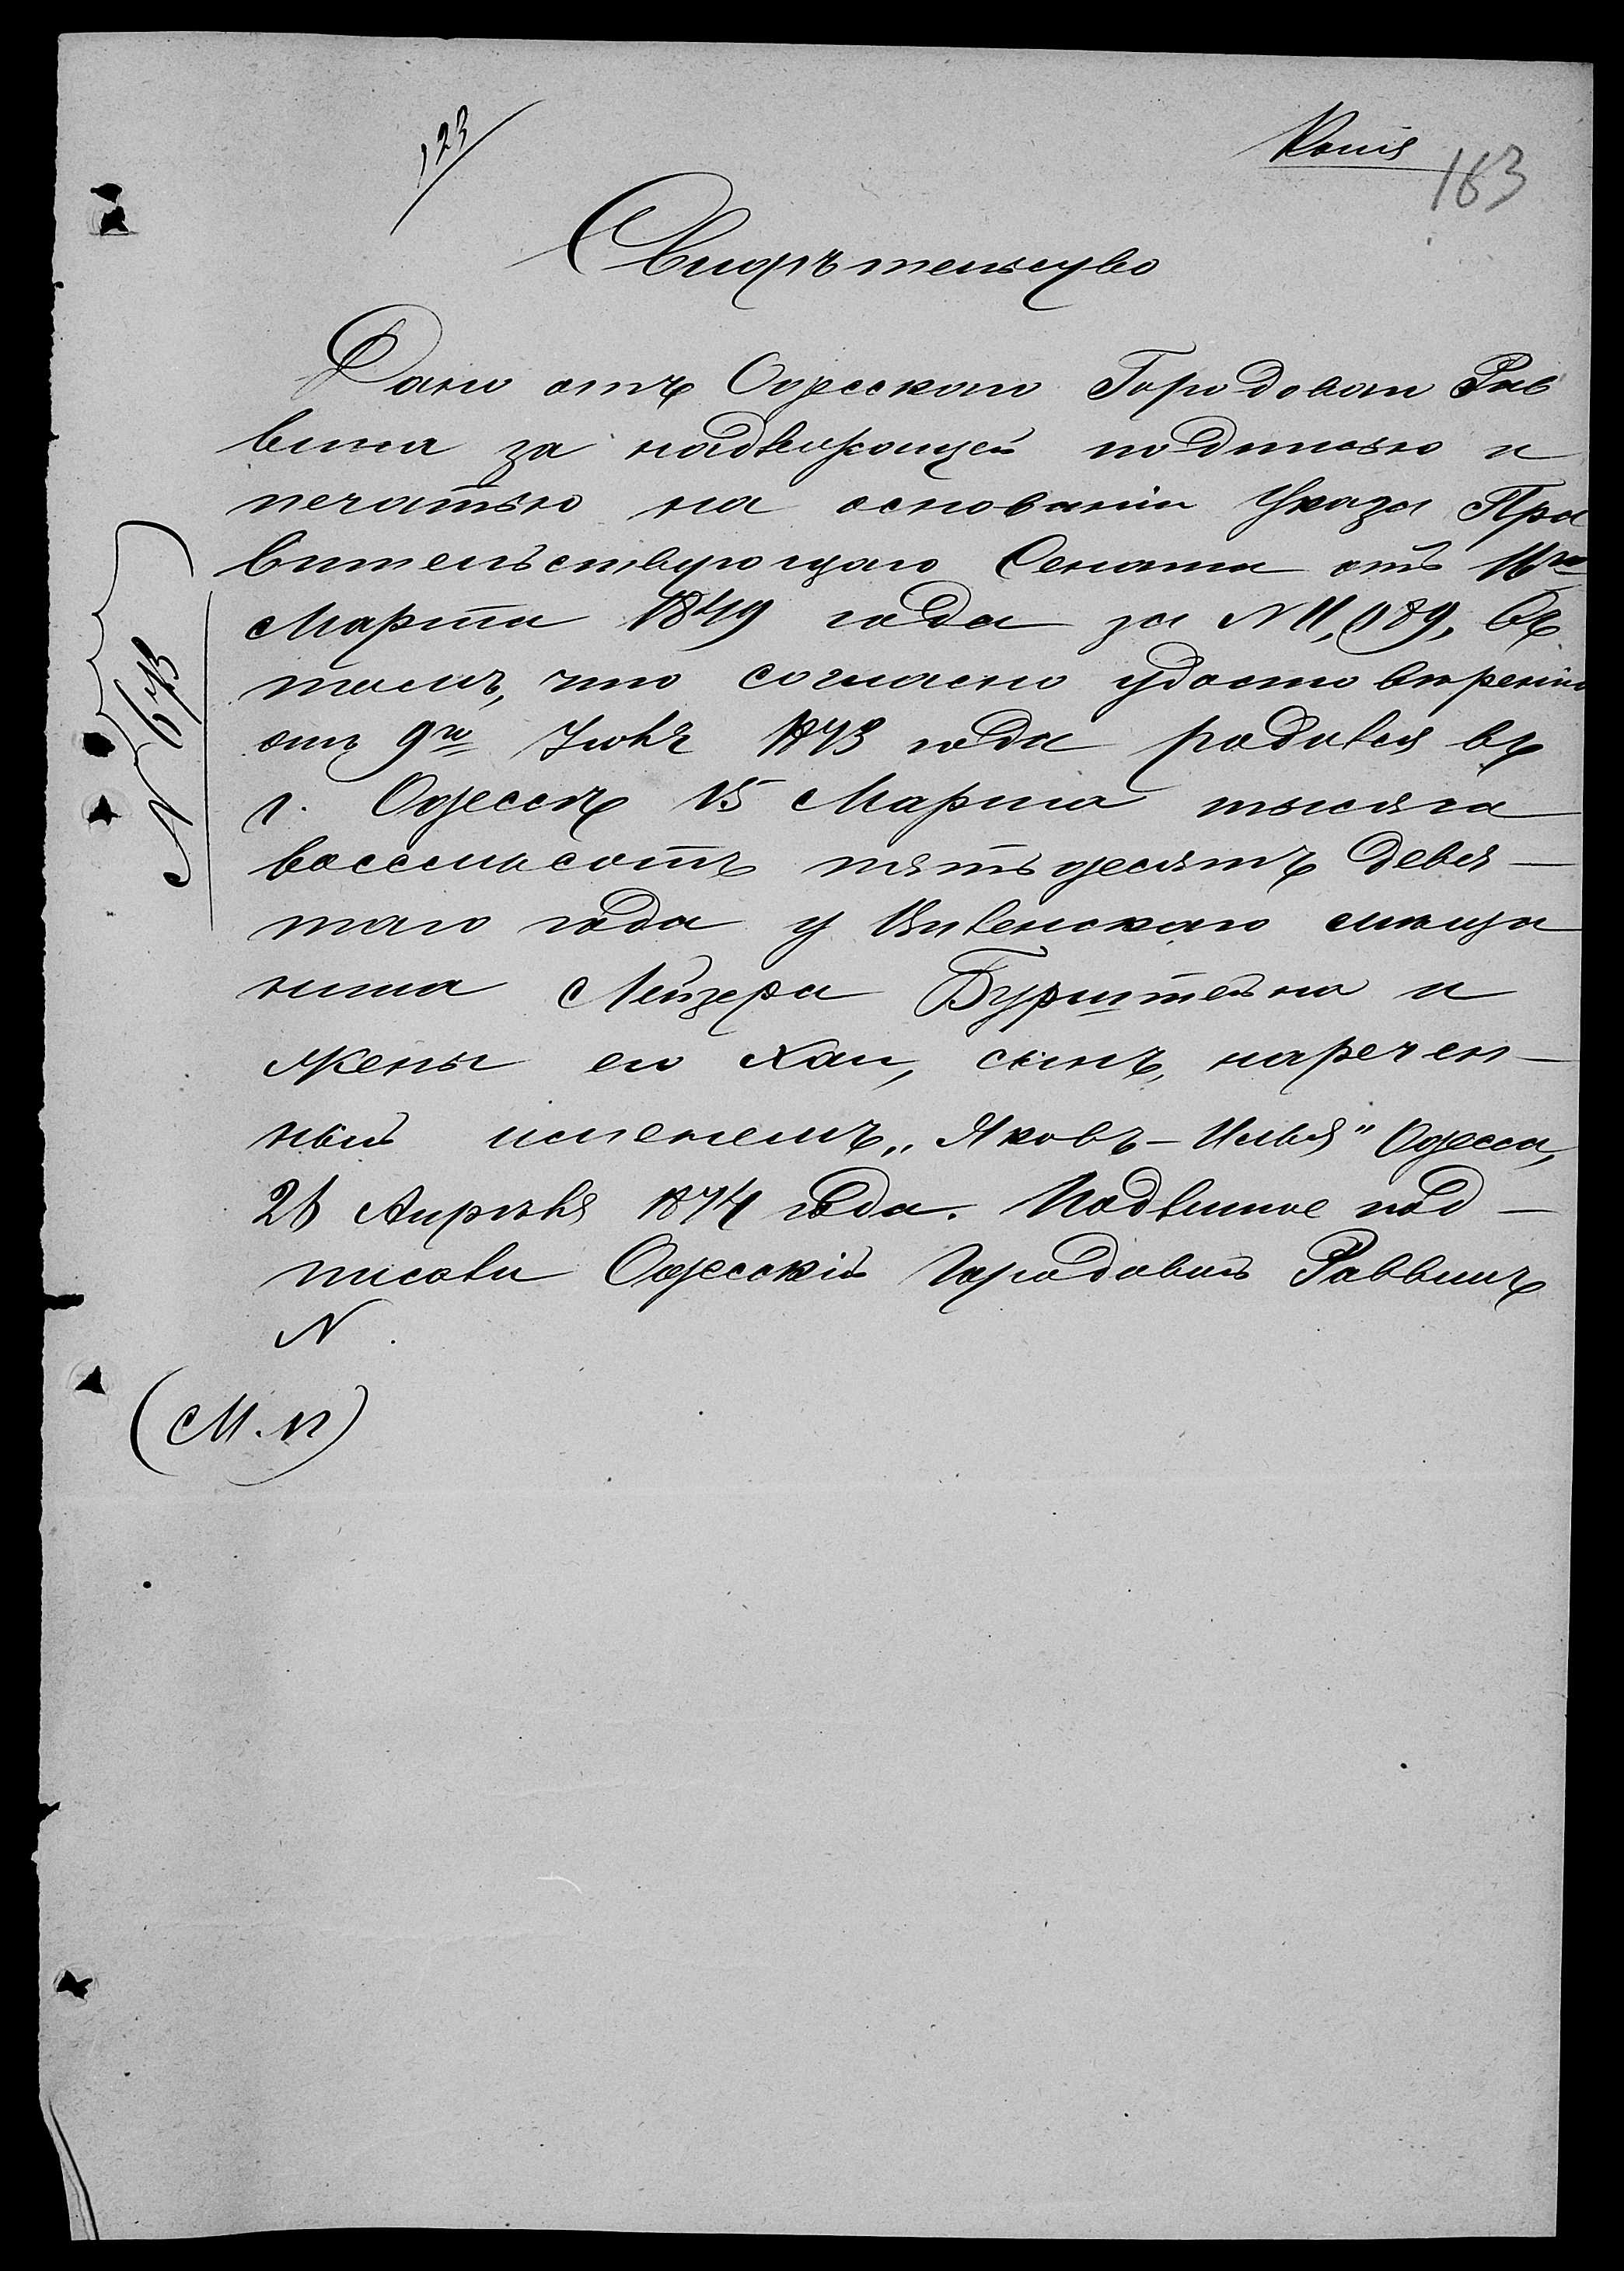 123
Копія
163
Свидѣтельство
Дано отъ Одесскаго Городоваго Рав
вина за надлежащей подписью и
печатью на основаніи Указа Пра
вительствующаго Сената отъ 16го
Марта 1849 года за N 11,089, въ
томъ, что согласно удостовѣренію
отъ 9го Іюля 1873 года родился въ
г. Одессѣ 15 Марта тысяча
восемьсотъ пятьдесятъ девя-
таго года у Виленскаго мѣща
нина Лейзера Бурштейна и
жены его Хаи, сынъ, наречен-
ный именемъ „Яковъ-Илья" Одесса,
26 Апрѣля 1874 года. Подлинное под-
писали Одесскій Городовой Раввинъ
N.
(М.П)
N 673